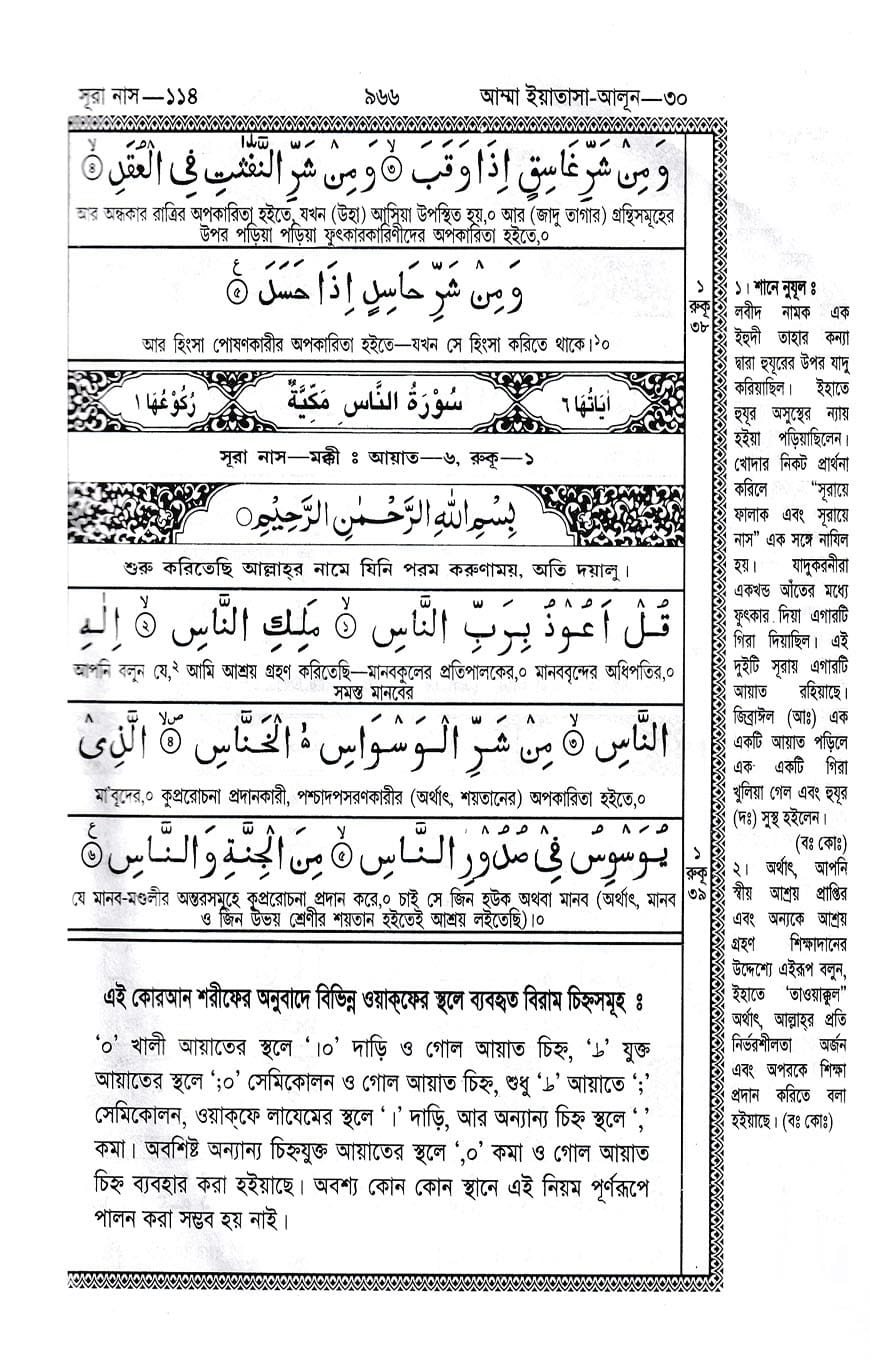 সূরা নাস—১১৪ ৯৬৬ আম্মা ইয়াতাসা-আলূন—৩০
وَمِنْ شَرِّ غَاسِقٍ اِذَا وَقَبَ ۝٣ وَمِنْ شَرِّ النَّفّٰثٰتِ فِى الْعُقَدِ ۝٤
আর অন্ধকার রাত্রির অপকারিতা হইতে, যখন (উহা) আসিয়া উপস্থিত হয়,০ আর (জাদু তাগার) গ্রন্থিসমূহের
উপর পড়িয়া পড়িয়া ফুৎকারকারিণীদের অপকারিতা হইতে,০
وَمِنْ شَرِّ حَاسِدٍ اِذَا حَسَدَ ۝٥
আর হিংসা পোষণকারীর অপকারিতা হইতে—যখন সে হিংসা করিতে থাকে।১০
اٰيَاتُهَا ٦ سُوْرَةُ النَّاسِ مَكِّيَّةٌ رُكُوْعُهَا ١
সূরা নাস—মক্কী ঃ আয়াত—৬, রুকূ—১
بِسْمِ اللهِ الرَّحْمٰنِ الرَّحِيْمِ ۝
শুরু করিতেছি আল্লাহ্‌র নামে যিনি পরম করুণাময়, অতি দয়ালু।
قُلْ اَعُوْذُ بِرَبِّ النَّاسِ ۝١ مَلِكِ النَّاسِ ۝٢ اِلٰهِ
আপনি বলুন যে,২ আমি আশ্রয় গ্রহণ করিতেছি—মানবকুলের প্রতিপালকের,০ মানববৃন্দের অধিপতির,০
সমস্ত মানবের
النَّاسِ ۝٣ مِنْ شَرِّ الْوَسْوَاسِ ۙ الْخَنَّاسِ ۝٤ الَّذِىْ
মা'বূদের,০ কুপ্ররোচনা প্রদানকারী, পশ্চাদপসরণকারীর (অর্থাৎ, শয়তানের) অপকারিতা হইতে,০
يُوَسْوِسُ فِىْ صُدُوْرِ النَّاسِ ۝٥ مِنَ الْجِنَّةِ وَالنَّاسِ ۝٦
যে মানব-মণ্ডলীর অন্তরসমূহে কুপ্ররোচনা প্রদান করে,০ চাই সে জিন হউক অথবা মানব (অর্থাৎ, মানব
ও জিন উভয় শ্রেণীর শয়তান হইতেই আশ্রয় লইতেছি)।০
এই কোরআন শরীফের অনুবাদে বিভিন্ন ওয়াক্‌ফের স্থলে ব্যবহৃত বিরাম চিহ্নসমূহ ঃ
'০' খালী আয়াতের স্থলে '।০' দাড়ি ও গোল আয়াত চিহ্ন, 'ط' যুক্ত
আয়াতের স্থলে ';০' সেমিকোলন ও গোল আয়াত চিহ্ন, শুধু 'ط' আয়াতে ';'
সেমিকোলন, ওয়াক্‌ফে লাযেমের স্থলে '।' দাড়ি, আর অন্যান্য চিহ্ন স্থলে ','
কমা। অবশিষ্ট অন্যান্য চিহ্নযুক্ত আয়াতের স্থলে ',০' কমা ও গোল আয়াত
চিহ্ন ব্যবহার করা হইয়াছে। অবশ্য কোন কোন স্থানে এই নিয়ম পূর্ণরূপে
পালন করা সম্ভব হয় নাই।
১
রুকূ
৩৮
১
রুকূ
৩৯
১। শানে নুযূল ঃ
লবীদ নামক এক
ইহুদী তাহার কন্যা
দ্বারা হুযূরের উপর যাদু
করিয়াছিল। ইহাতে
হুযূর অসুস্থের ন্যায়
হইয়া পড়িয়াছিলেন।
খোদার নিকট প্রার্থনা
করিলে "সূরায়ে
ফালাক এবং সূরায়ে
নাস" এক সঙ্গে নাযিল
হয়। যাদুকরনীরা
একখন্ড আঁতের মধ্যে
ফুৎকার দিয়া এগারটি
গিরা দিয়াছিল। এই
দুইটি সূরায় এগারটি
আয়াত রহিয়াছে।
জিব্রাঈল (আঃ) এক
একটি আয়াত পড়িলে
এক একটি গিরা
খুলিয়া গেল এবং হুযূর
(দঃ) সুস্থ হইলেন।
(বঃ কোঃ)
২। অর্থাৎ, আপনি
স্বীয় আশ্রয় প্রাপ্তির
এবং অন্যকে আশ্রয়
গ্রহণ শিক্ষাদানের
উদ্দেশ্যে এইরূপ বলুন,
ইহাতে 'তাওয়াক্কুল"
অর্থাৎ, আল্লাহ্‌র প্রতি
নির্ভরশীলতা অর্জন
এবং অপরকে শিক্ষা
প্রদান করিতে বলা
হইয়াছে। (বঃ কোঃ)